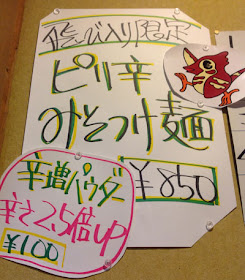 飛び入り限定
ピリ辛
みそつけ麺
¥850
辛増パウダー
辛さ2,5倍UP
¥100